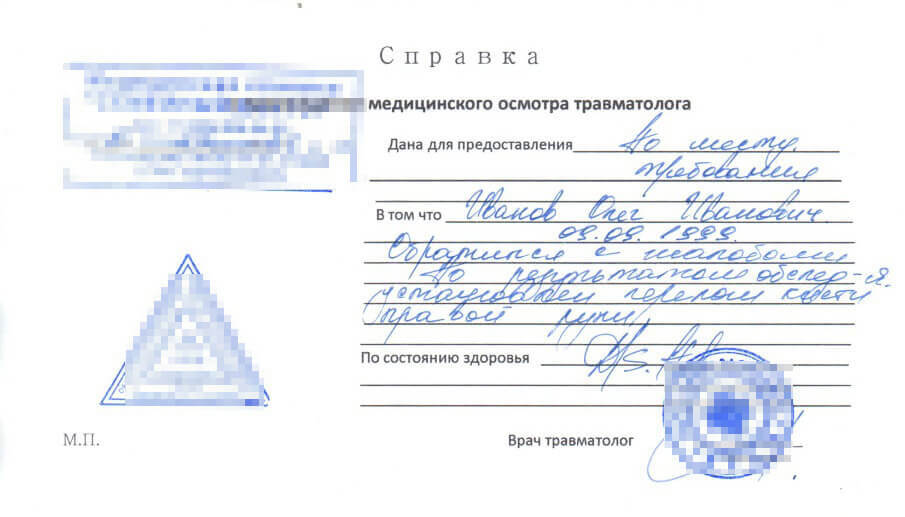 Справка
медицинского осмотра травматолога
Дана для предоставления По месту
требования
В том что Иванов Олег Иванович.
09.09.1999.
Обратился с жалобами
По результатам обслед-я.
установлен перелом кисти
правой руки
По состоянию здоровья
М.П.
Врач травматолог